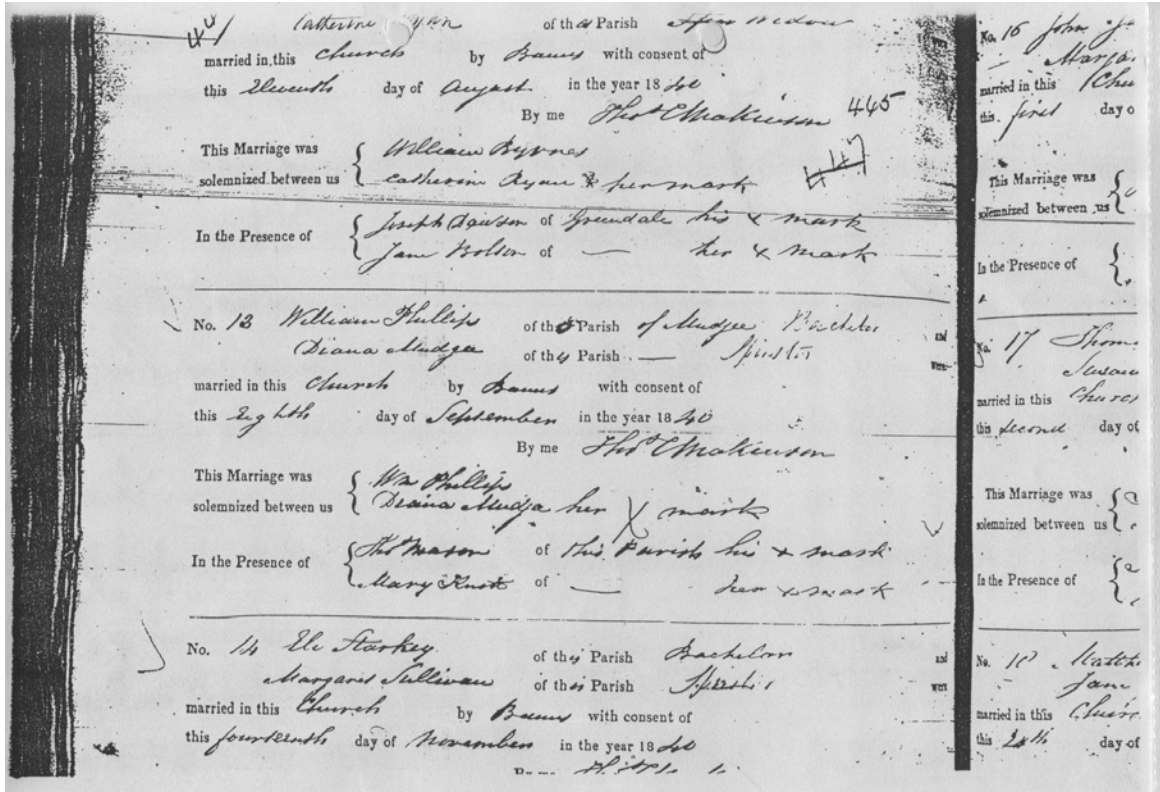 Catherine Ryan of this Parish Widow
married in this Church by Banns with consent of
this Eleventh day of August in the year 1840
By me Thos C Makinson 445
This Marriage was solemnized between us
William Byrnes
Catherin Ryan X her mark
In the Presence of
Joseph Dawson of Greendale his x mark
Jane Bolson of — her x mark
No. 13 William Phillips of the Parish of Mudgee Bachelor and
Diana Mudga of this Parish — Spinster were
married in this Church by Banns with consent of
this Eighth day of September in the year 1840
By me Thos C Makinson
This Marriage was solemnized between us
Wm Phillips
Diana Mudga her X mark
In the Presence of
Thos Mason of this Parish his x mark
Mary of — her x mark
No. 14 Eli Starkey of this Parish Bachelor and
Margaret Sullivan of this Parish Spinster were
married in this Church by Banns with consent of
this fourteenth day of November in the year 1840
No. 16 John
married in this
this first day o
This Marriage was
solemnized between us
In the Presence of
No. 17
married in this Church
this second day of
This Marriage was
solemnized between us
In the Presence of
No.
Jane
married in this
this day of